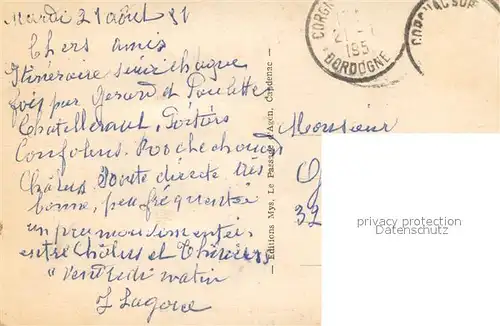 Mardi 21 août 51
Chers amis
Itinéraire suivi chaque
fois par Gerard et Paulette
Chatellerault, Poitiers
Confolens. Rochechouart
Châlus. Route directe très
bonne, peu fréquentée
un peu mouvementée
entre Châlus et Thiviers
"Vendredi" matin
Lagorce
Monsieur
32
Editions Mys, Le Passage d'Agen, Capdenac
CORGNAC SUR
195
DORDOGNE
CORGNAC SUR
privacy protection
Datenschutz